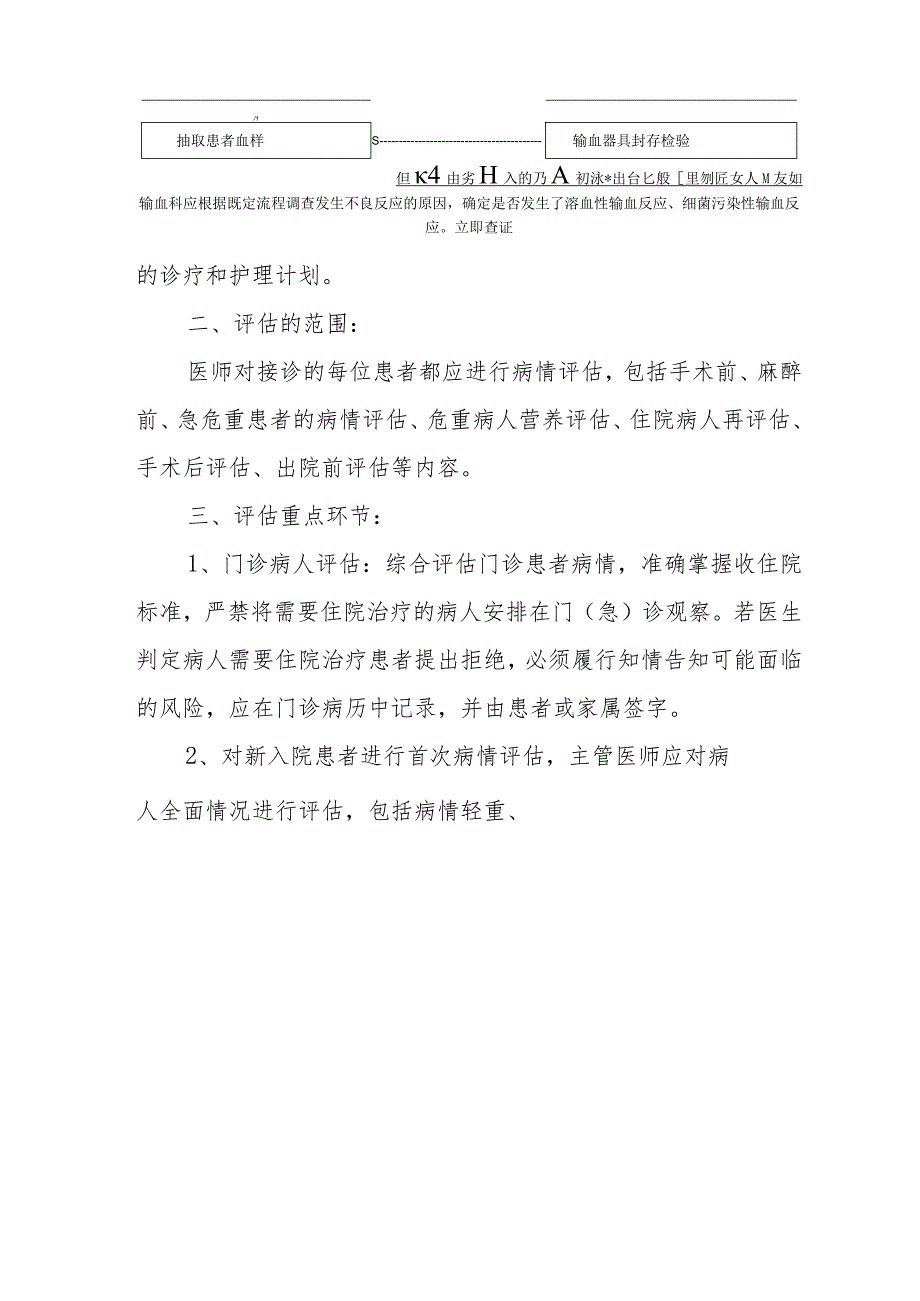 抽取患者血样
S------------------------------------------
输血器具封存检验
但κ4由劣H入的乃A初泳*出台匕般[里刎匠女人M友如
输血科应根据既定流程调查发生不良反应的原因，确定是否发生了溶血性输血反应、细菌污染性输血反
应。立即查证
的诊疗和护理计划。
二、评估的范围：
医师对接诊的每位患者都应进行病情评估，包括手术前、麻醉
前、急危重患者的病情评估、危重病人营养评估、住院病人再评估、
手术后评估、出院前评估等内容。
三、评估重点环节：
1、门诊病人评估：综合评估门诊患者病情，准确掌握收住院
标准，严禁将需要住院治疗的病人安排在门（急）诊观察。若医生
判定病人需要住院治疗患者提出拒绝，必须履行知情告知可能面临
的风险，应在门诊病历中记录，并由患者或家属签字。
2、对新入院患者进行首次病情评估，主管医师应对病
人全面情况进行评估，包括病情轻重、